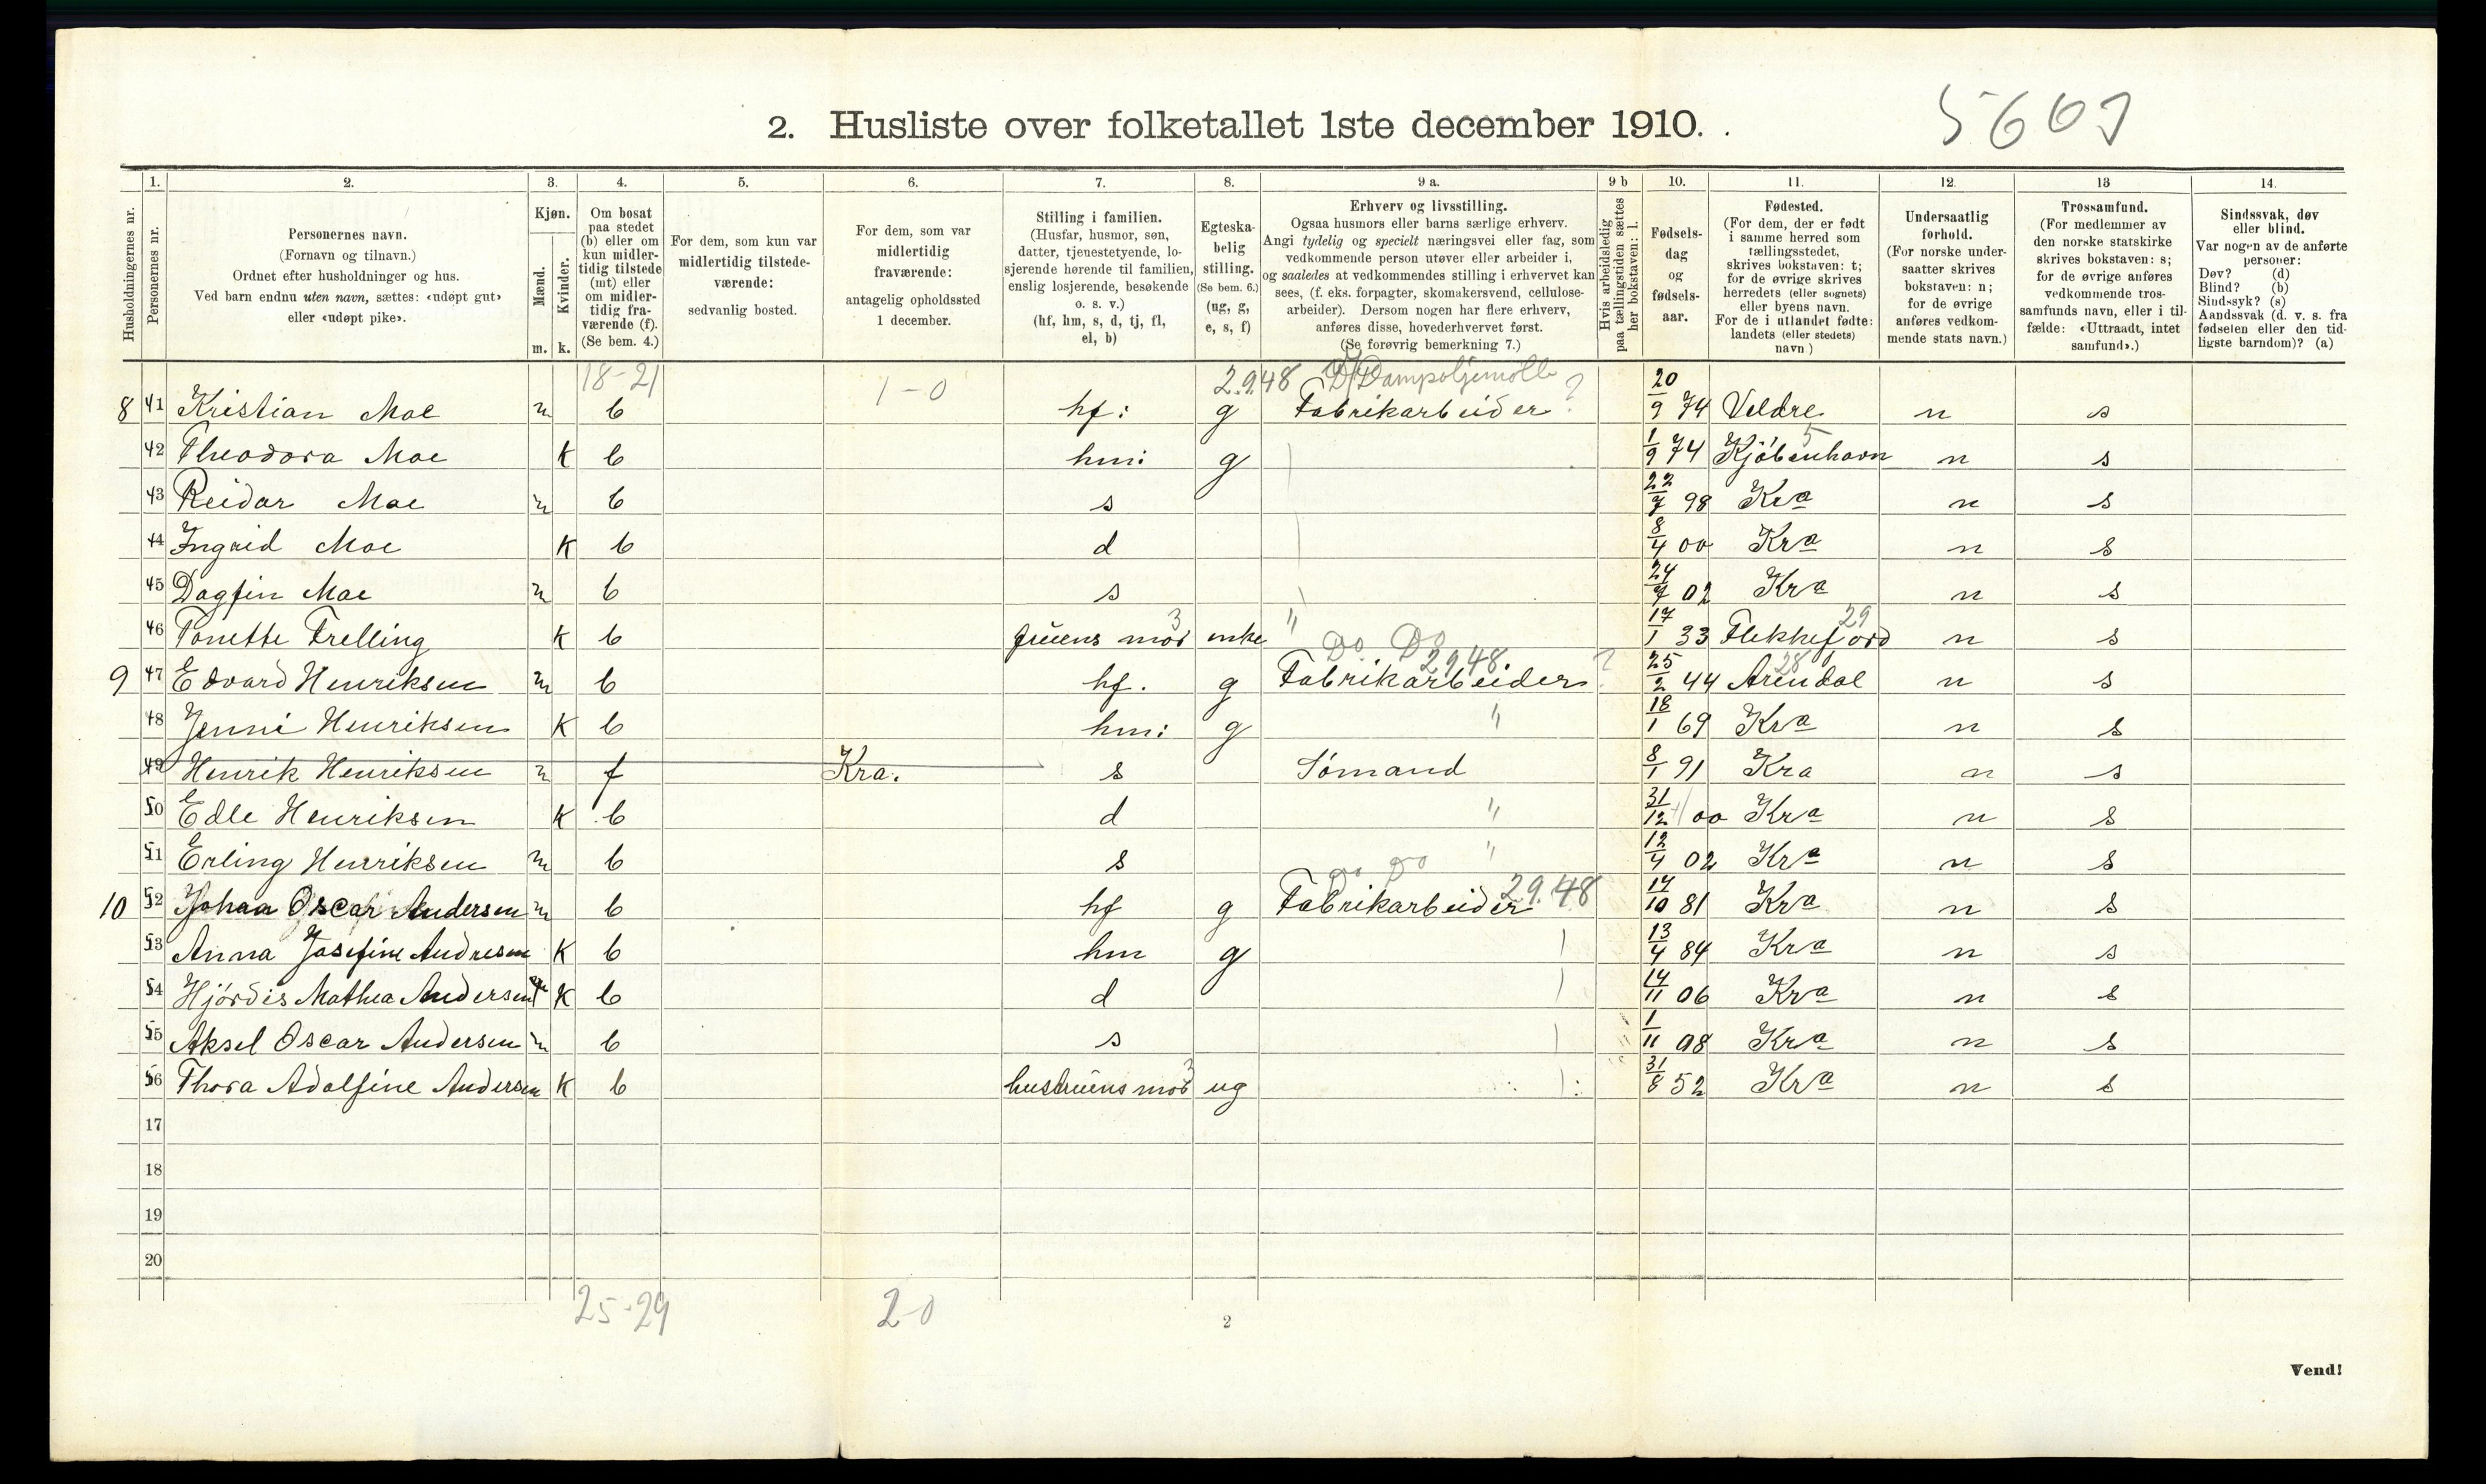 5603
2. Husliste over folketallet 1ste december 1910.
Husholdningernes nr. | 1. Personernes nr. | 2. Personernes navn. (Fornavn og tilnavn.) Ordnet efter husholdninger og hus. Ved barn endnu uten navn, sættes: «udøpt gut» eller «udøpt pike». | 3. Kjøn. Mænd. m. Kvinder. k. | 4. Om bosat paa stedet (b) eller om kun midlertidig tilstede (mt) eller om midlertidig fraværende (f). (Se bem. 4.) | 5. For dem, som kun var midlertidig tilstedeværende: sedvanlig bosted. | 6. For dem, som var midlertidig fraværende: antagelig opholdssted 1 december. | 7. Stilling i familien. (Husfar, husmor, søn, datter, tjenestetyende, losjerende hørende til familien, enslig losjerende, besøkende o. s. v.) (hf, hm, s, d, tj, fl, el, b) | 8. Egteskabelig stilling. (Se bem. 6.) (ug, g, e, s, f) | 9 a. Erhverv og livsstilling. Ogsaa husmors eller barns særlige erhverv. Angi tydelig og specielt næringsvei eller fag, som vedkommende person utøver eller arbeider i, og saaledes at vedkommendes stilling i erhvervet kan sees, (f. eks. forpagter, skomakersvend, cellulosearbeider). Dersom nogen har flere erhverv, anføres disse, hovederhvervet først. (Se forøvrig bemerkning 7.) | 9 b Hvis arbeidsledig paa tællingstiden sættes her bokstaven: l. | 10. Fødselsdag og fødselsaar. | 11. Fødested. (For dem, der er født i samme herred som tællingsstedet, skrives bokstaven: t; for de øvrige skrives herredets (eller sognets) eller byens navn. For de i utlandet fødte: landets (eller stedets) navn.) | 12. Undersaatlig forhold. (For norske undersaatter skrives bokstaven: n; for de øvrige anføres vedkommende stats navn.) | 13 Trossamfund. (For medlemmer av den norske statskirke skrives bokstaven: s; for de øvrige anføres vedkommende trossamfunds navn, eller i tilfælde: «Uttraadt, intet samfund».) | 14. Sindssvak, døv eller blind. Var nogen av de anførte personer: Døv? (d) Blind? (b) Sindssyk? (s) Aandssvak (d. v. s. fra fødselen eller den tidligste barndom)? (a)
18-21 1-0 29.48 Dampoljemølle
8 41 Kristian Moe m b hf: g Fabrikarbeider ? 20/9 74 Veldre n s
42 Theodora Moe K b hm: g 1/9 74 Kjøbenhavn 5 n s
43 Reidar Moe m b s 22/7 98 Kra n s
44 Ingrid Moe K b d 8/4 00 Kra n s
45 Dagfin Moe m b s 24/7 02 Kra n s
46 Tonette Trelling K b fruens mor 3 enke " 17/1 33 Flekkefjord 29 n s
Do Do
9 47 Edvard Henriksen m b hf. g Fabrikarbeider 29.48 ? 25/2 44 Arendal 28 n s
48 Jenni Henriksen K b hm: g " 18/1 69 Kra n s
49 Henrik Henriksen m f Kra. s Sømand 8/1 91 Kra n s
50 Edle Henriksen K b d " 31/12 00 Kra n s
51 Erling Henriksen m b s " 12/4 02 Kra n s
Do Do
10 52 Johan Oscar Andersen m b hf g Fabrikarbeider 29.48 14/10 81 Kra n s
53 Anna Josefine Andresen K b hm g 13/4 84 Kra n s
54 Hjördis Mathea Andersen K b d 14/11 06 Kra n s
55 Aksel Oscar Andersen m b s 1/11 08 Kra n s
56 Thora Adolfine Andersen K b hustruens mor 3 ug 31/8 52 Kra n s
17
18
19
20
25-29 2-0
2
Vend!